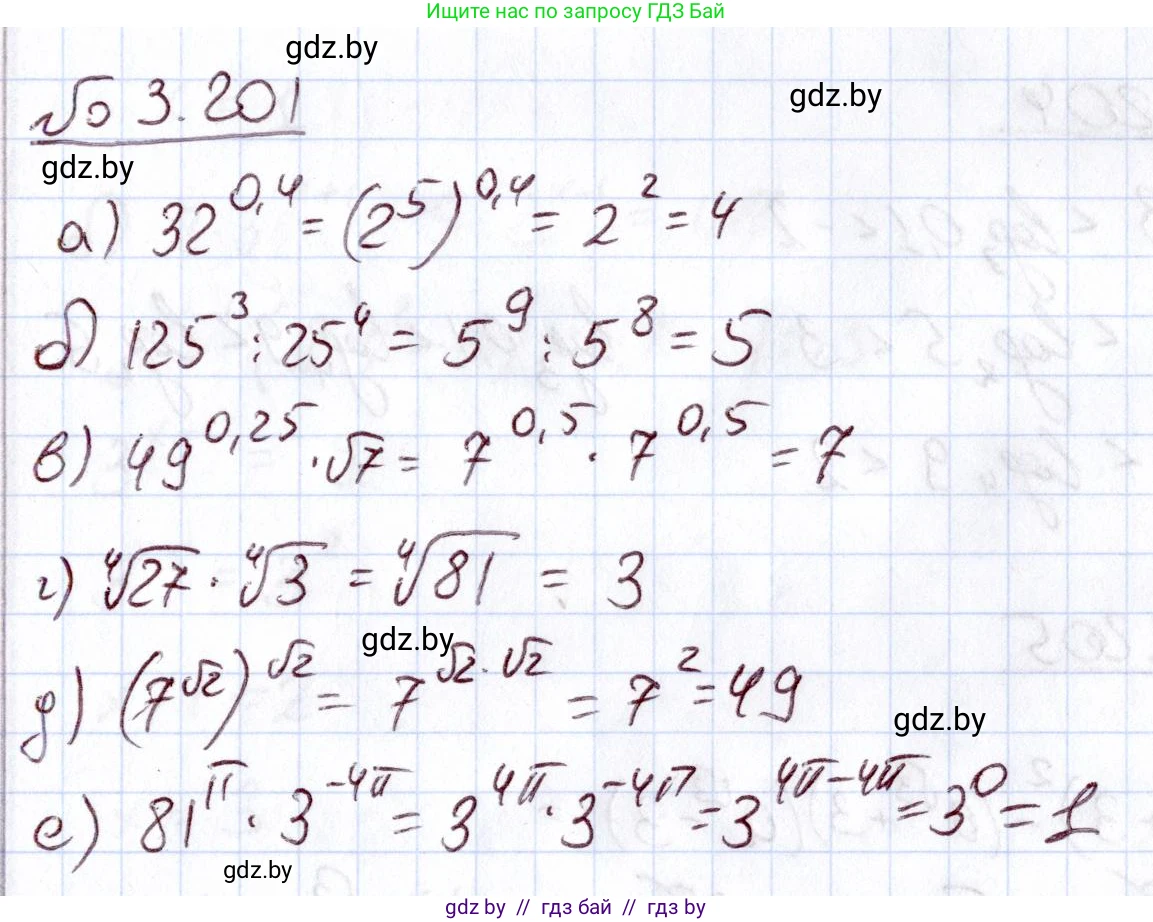 Ищите нас по запросу ГДЗ Бай
gdz.by
№ 3.201
gdz.by
gdz.by
а) 32^0,4 = (2^5)^0,4 = 2^2 = 4
б) 125^3 : 25^4 = 5^9 : 5^8 = 5
в) 49^0,25 · √7 = 7^0,5 · 7^0,5 = 7
г) ⁴√27 · ⁴√3 = ⁴√81 = 3
gdz.by
д) (7^√2)^√2 = 7^√2·√2 = 7^2 = 49
gdz.by
е) 81^π · 3^-4π = 3^4π · 3^-4π = 3^4π-4π = 3^0 = 1
gdz.by
gdz.by // гдз бай // гдз by